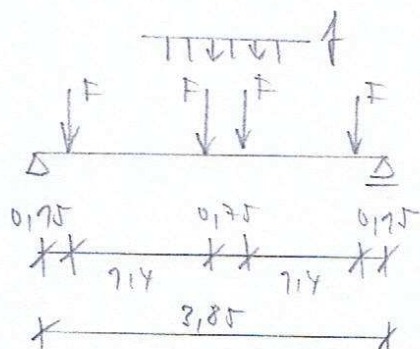 f
F F F F
0,15 0,75 0,15
1,4 1,4
3,85